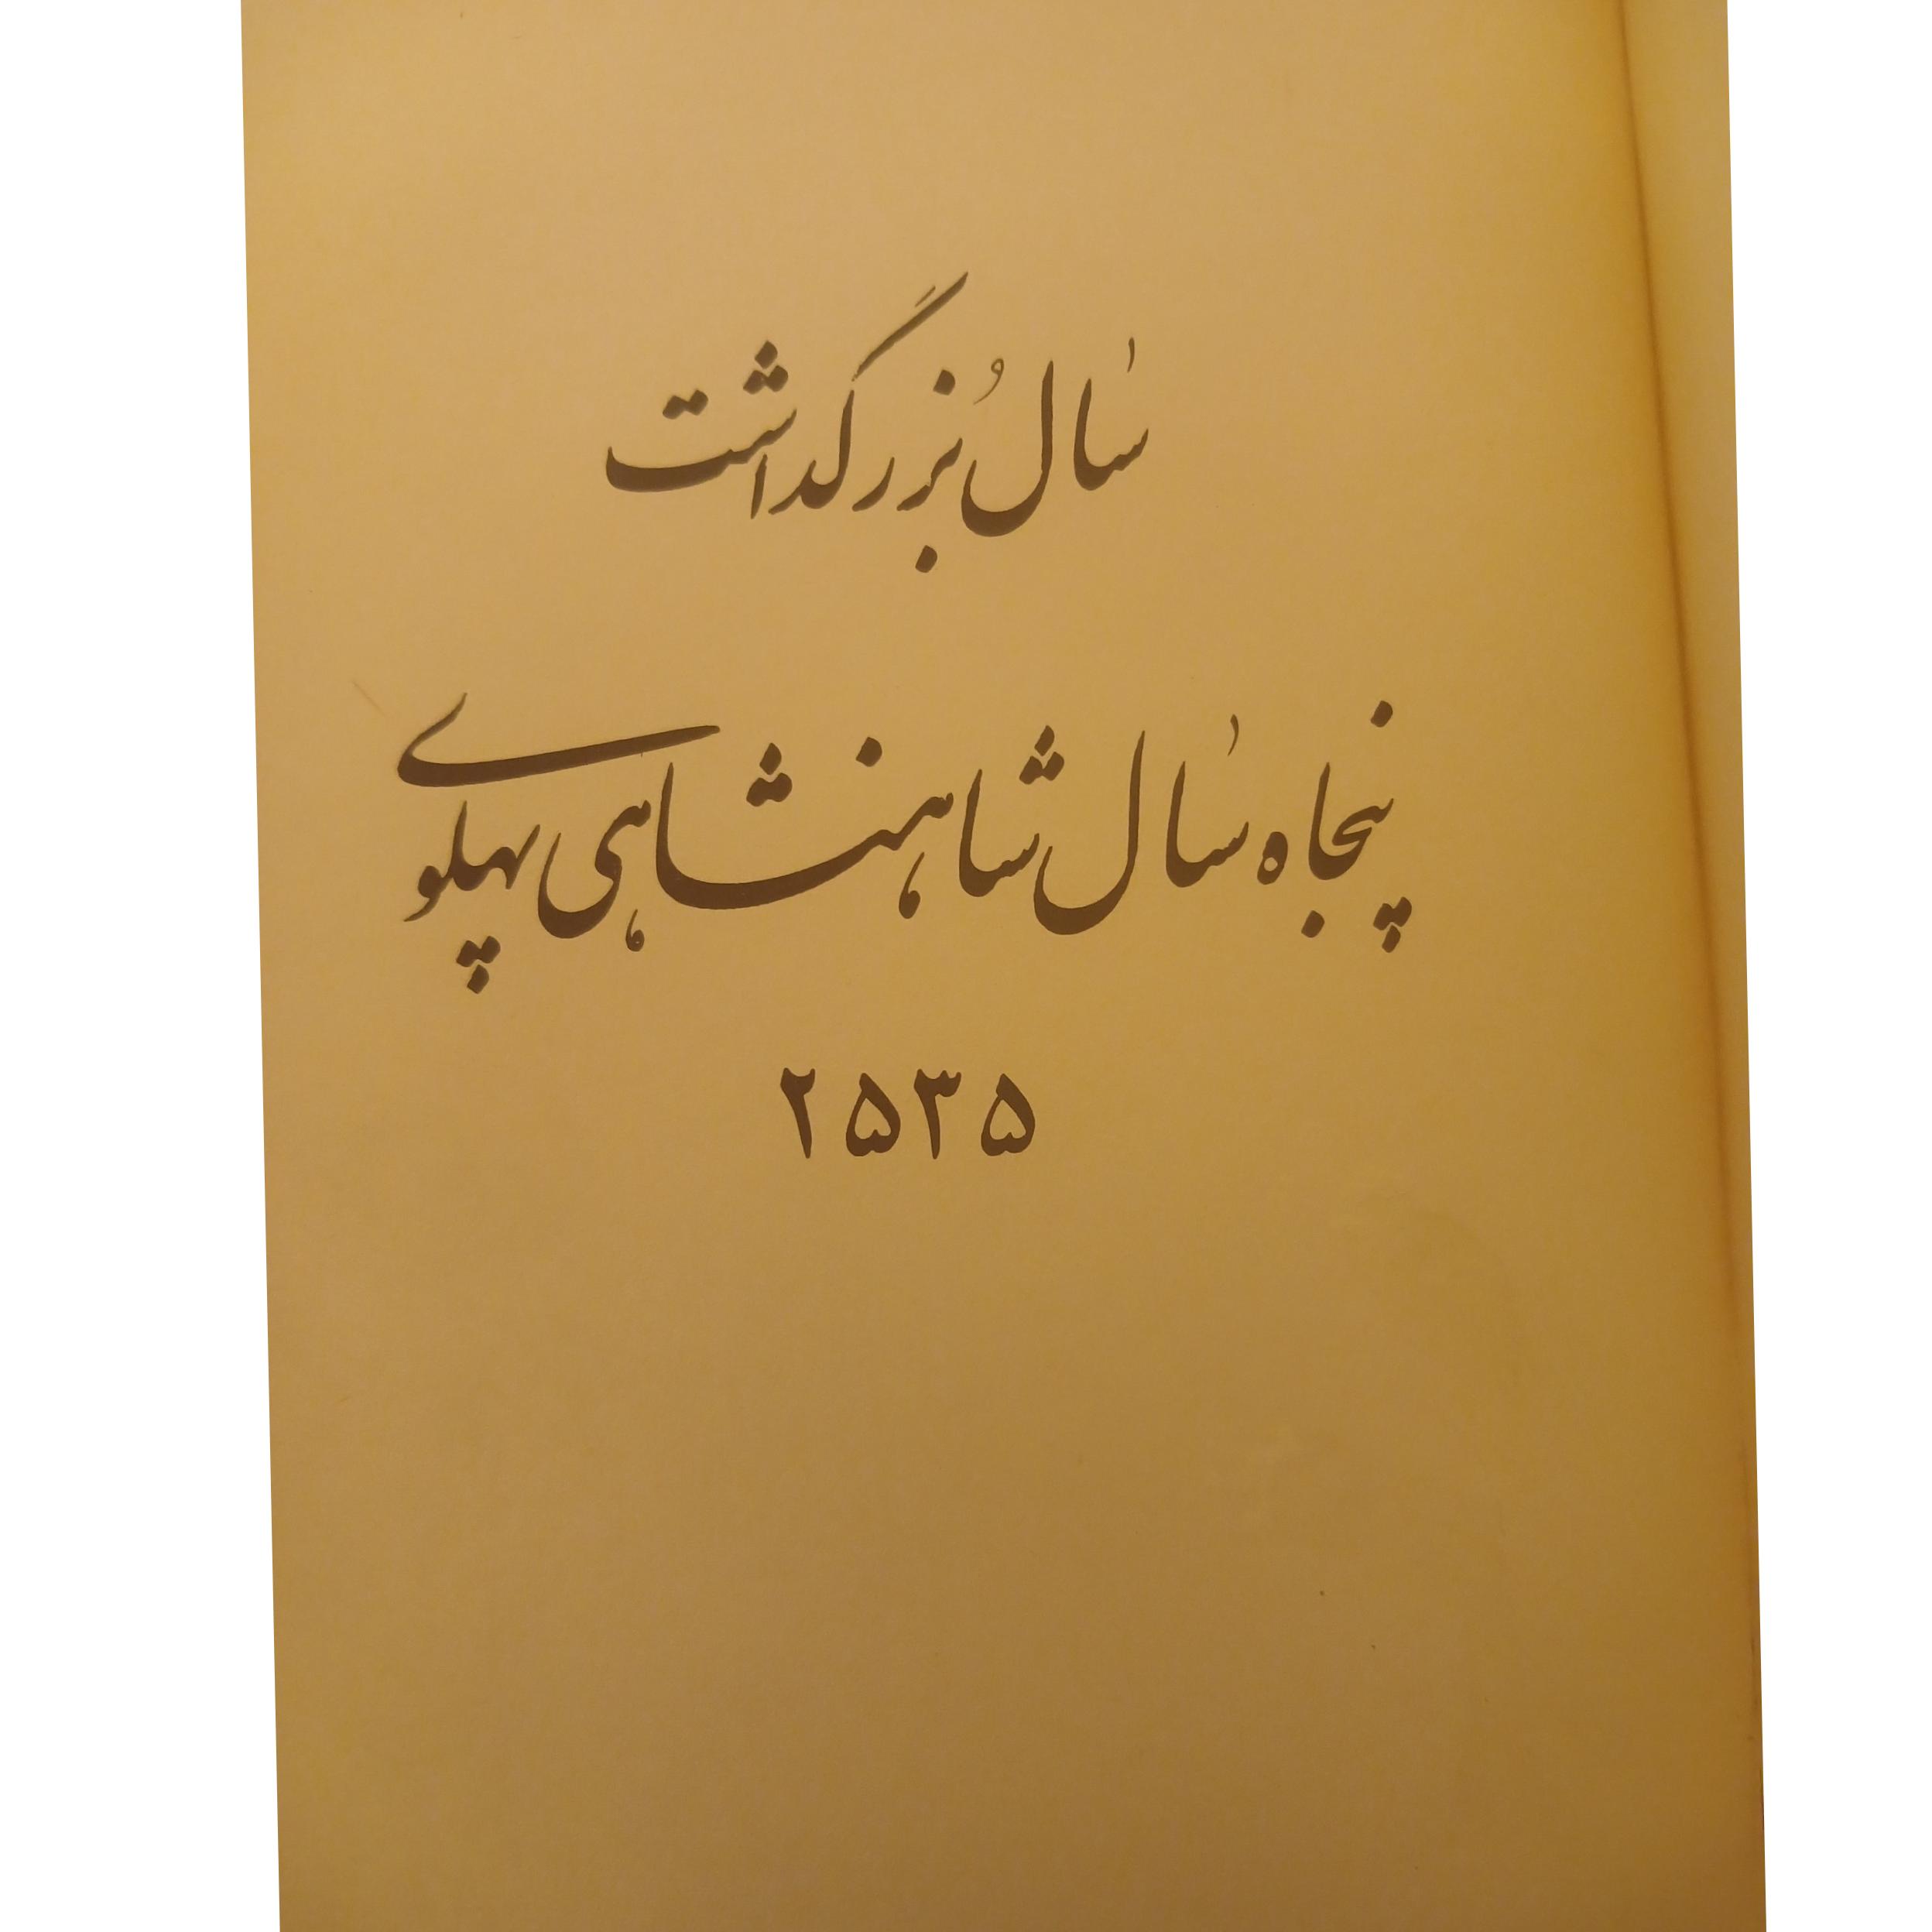 سال بزرگداشت
پنجاه سال شاهنشاهی پهلوی
۲۵۳۵